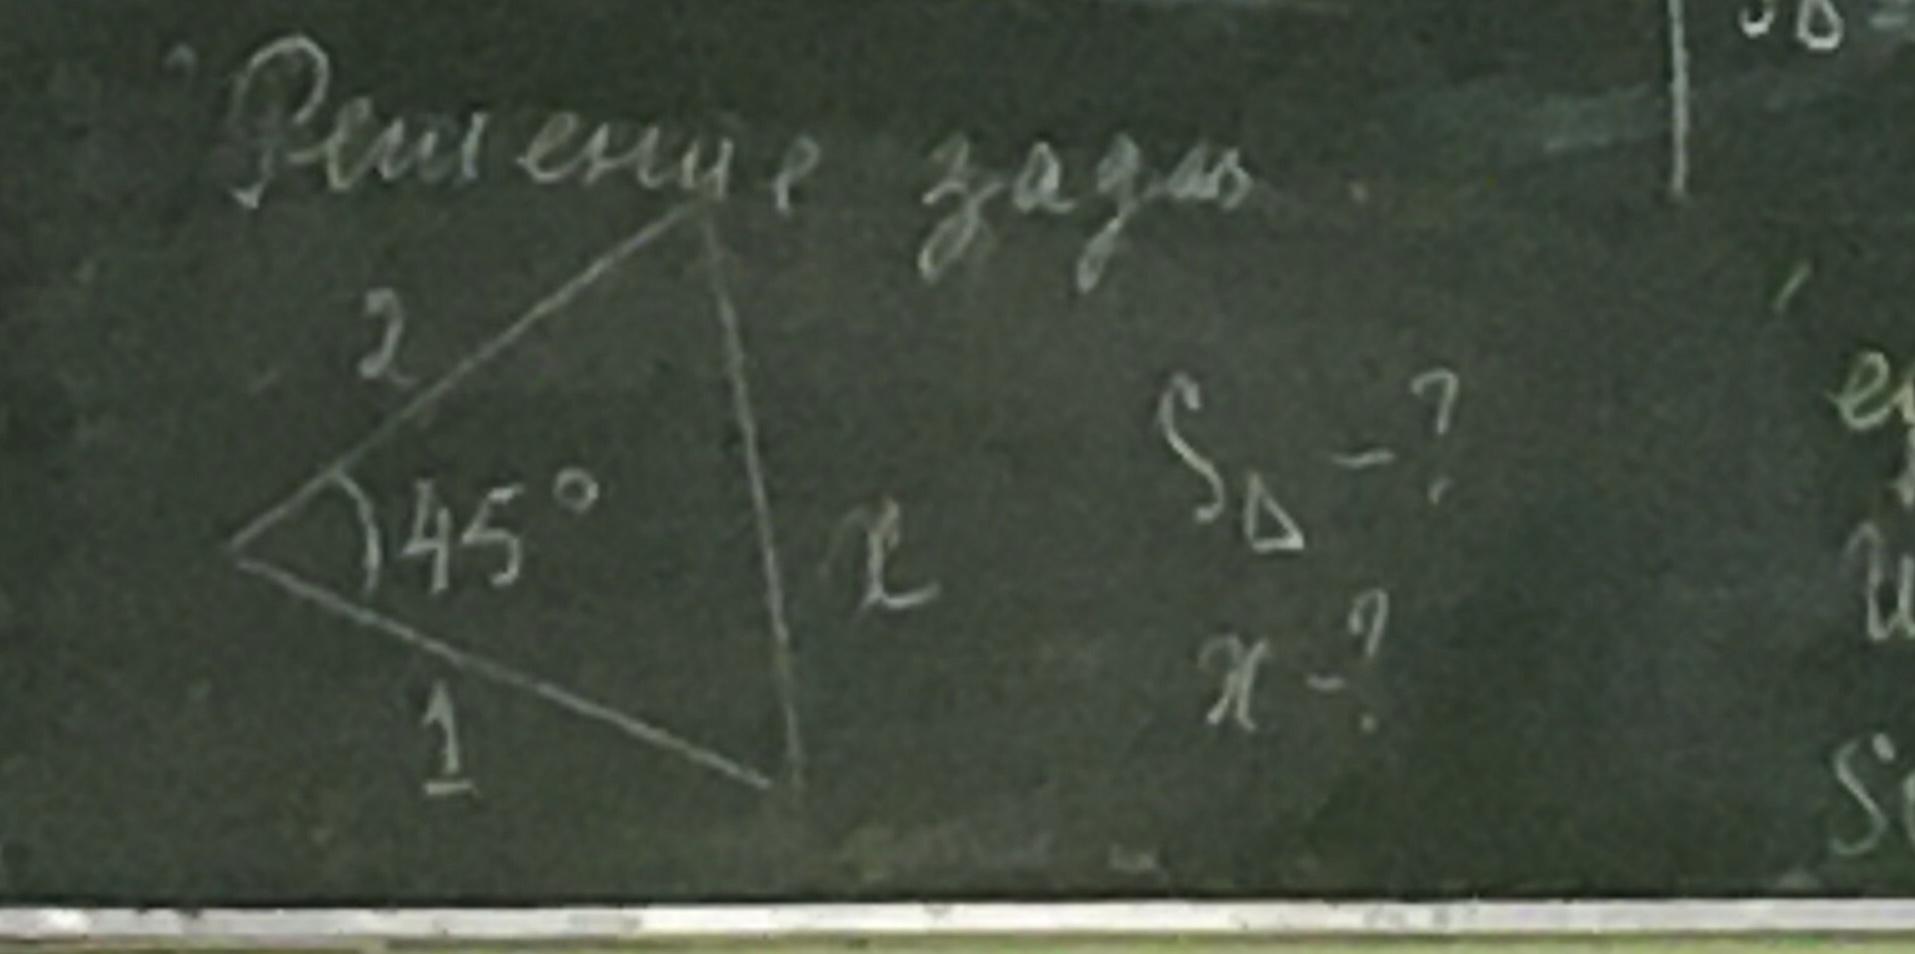 Решение задач.
2
45°
1
x
S△ - ?
x - ?
S△ =